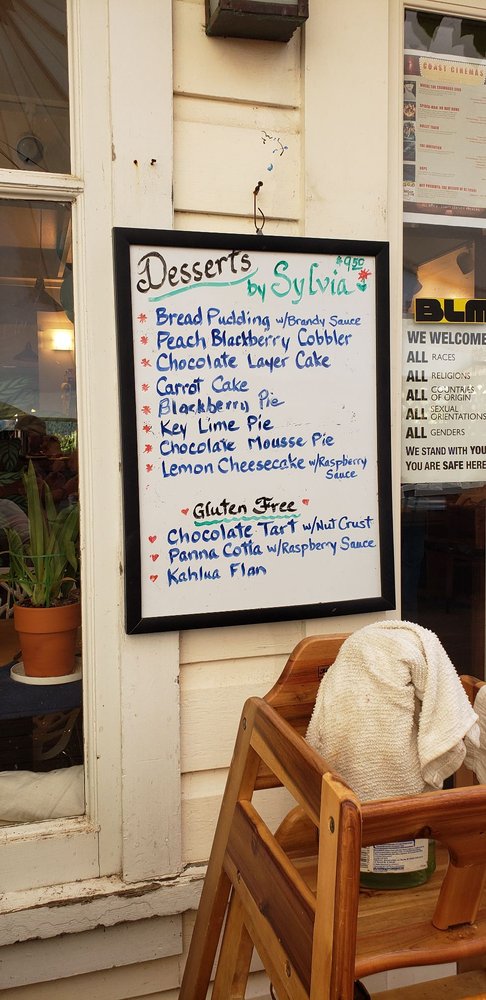 COAST CINEMAS
$9.50
Desserts
by Sylvia
Bread Pudding w/Brandy Sauce
Peach Blackberry Cobbler
Chocolate Layer Cake
Carrot Cake
Blackberry Pie
Key Lime Pie
Chocolate Mousse Pie
Lemon Cheesecake w/Raspberry
Sauce
Gluten Free
Chocolate Tart w/Nut Crust
Panna Cotta w/Raspberry Sauce
Kahlua Flan
BLM
WE WELCOME
ALL RACES
ALL RELIGIONS
ALL COUNTRIES
OF ORIGIN
ALL SEXUAL
ORIENTATIONS
ALL GENDERS
WE STAND WITH YOU
YOU ARE SAFE HERE